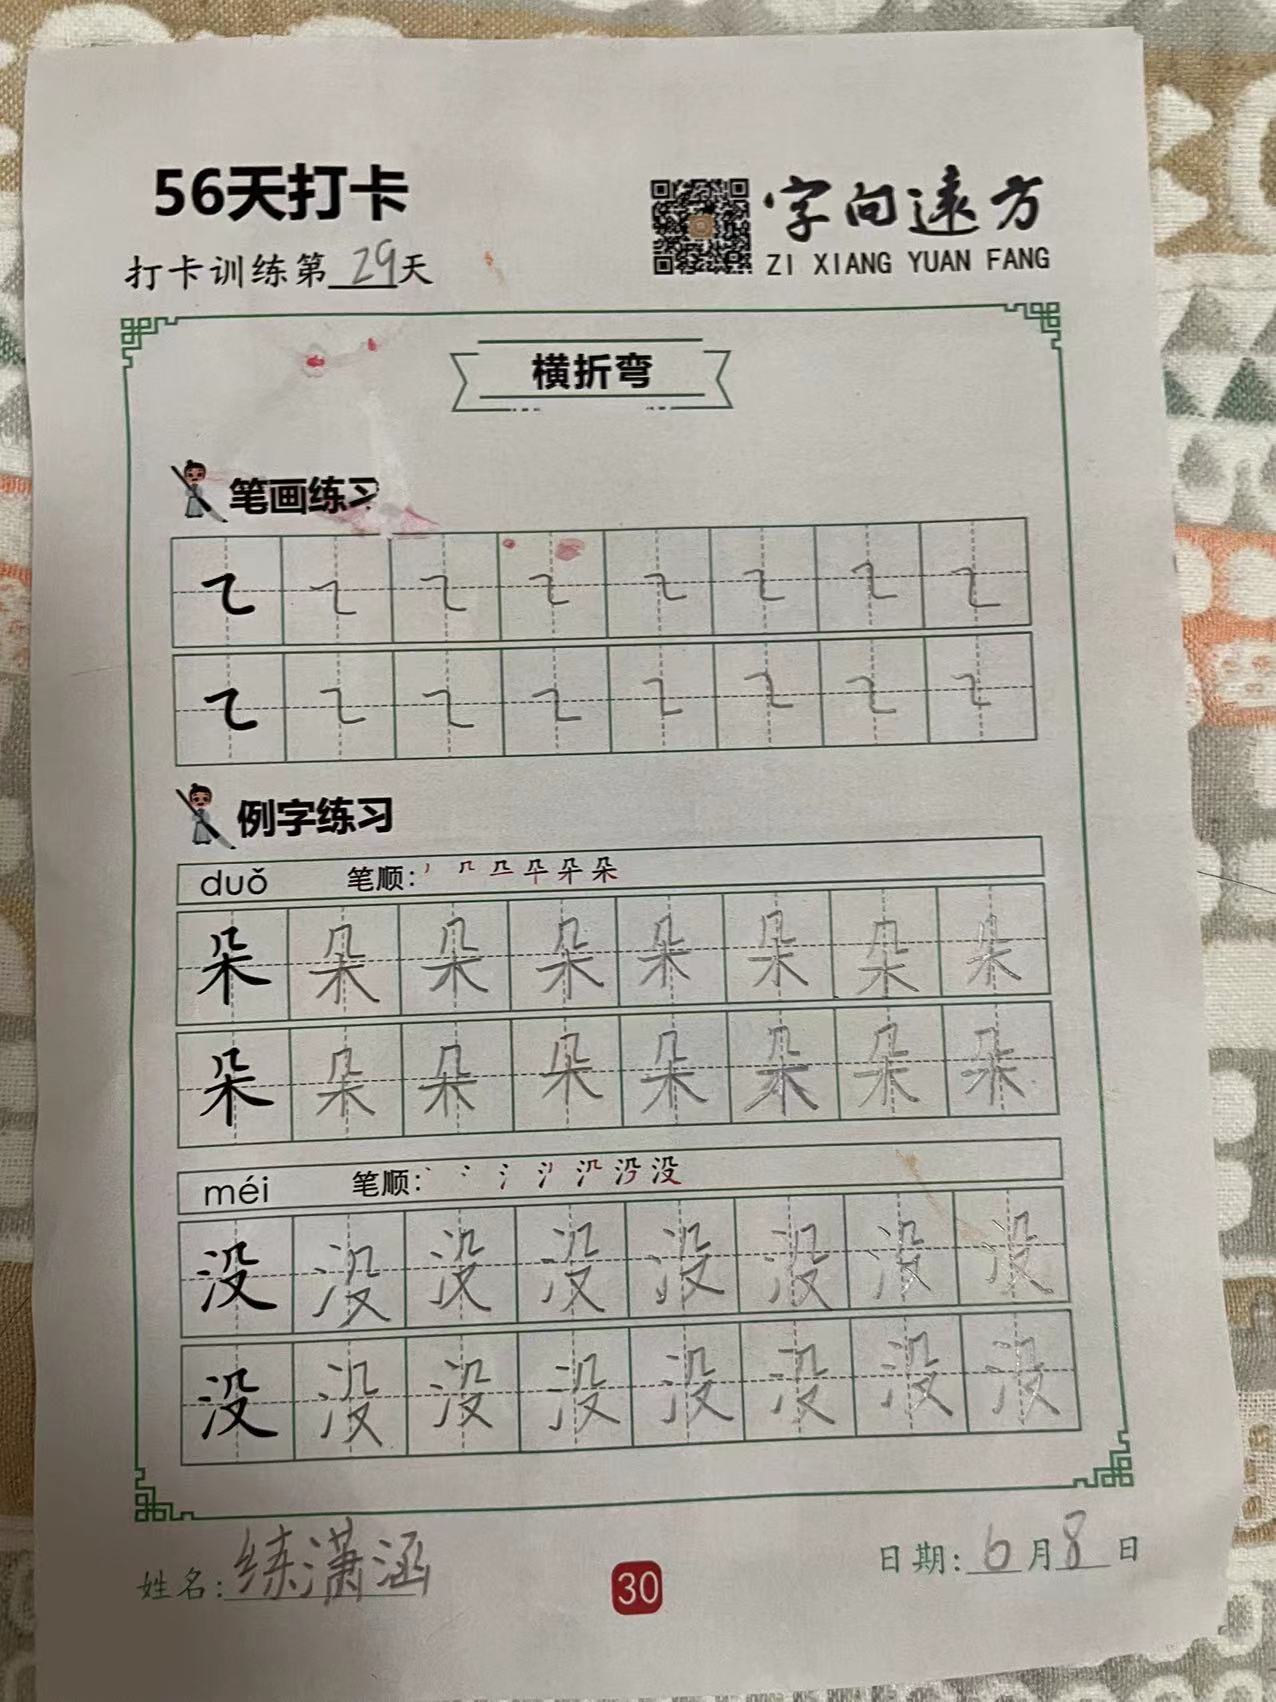 56天打卡
字向远方
打卡训练第29天
ZI XIANG YUAN FANG
横折弯
笔画练习
㇍ ㇍ ㇍ ㇍ ㇍ ㇍ ㇍ ㇍
㇍ ㇍ ㇍ ㇍ ㇍ ㇍ ㇍ ㇍
例字练习
duǒ 笔顺: 朵
朵 朵 朵 朵 朵 朵 朵 朵
朵 朵 朵 朵 朵 朵 朵 朵
méi 笔顺: 没
没 没 没 没 没 没 没 没
没 没 没 没 没 没 没 没
姓名:练潇涵
30
日期:6月8日